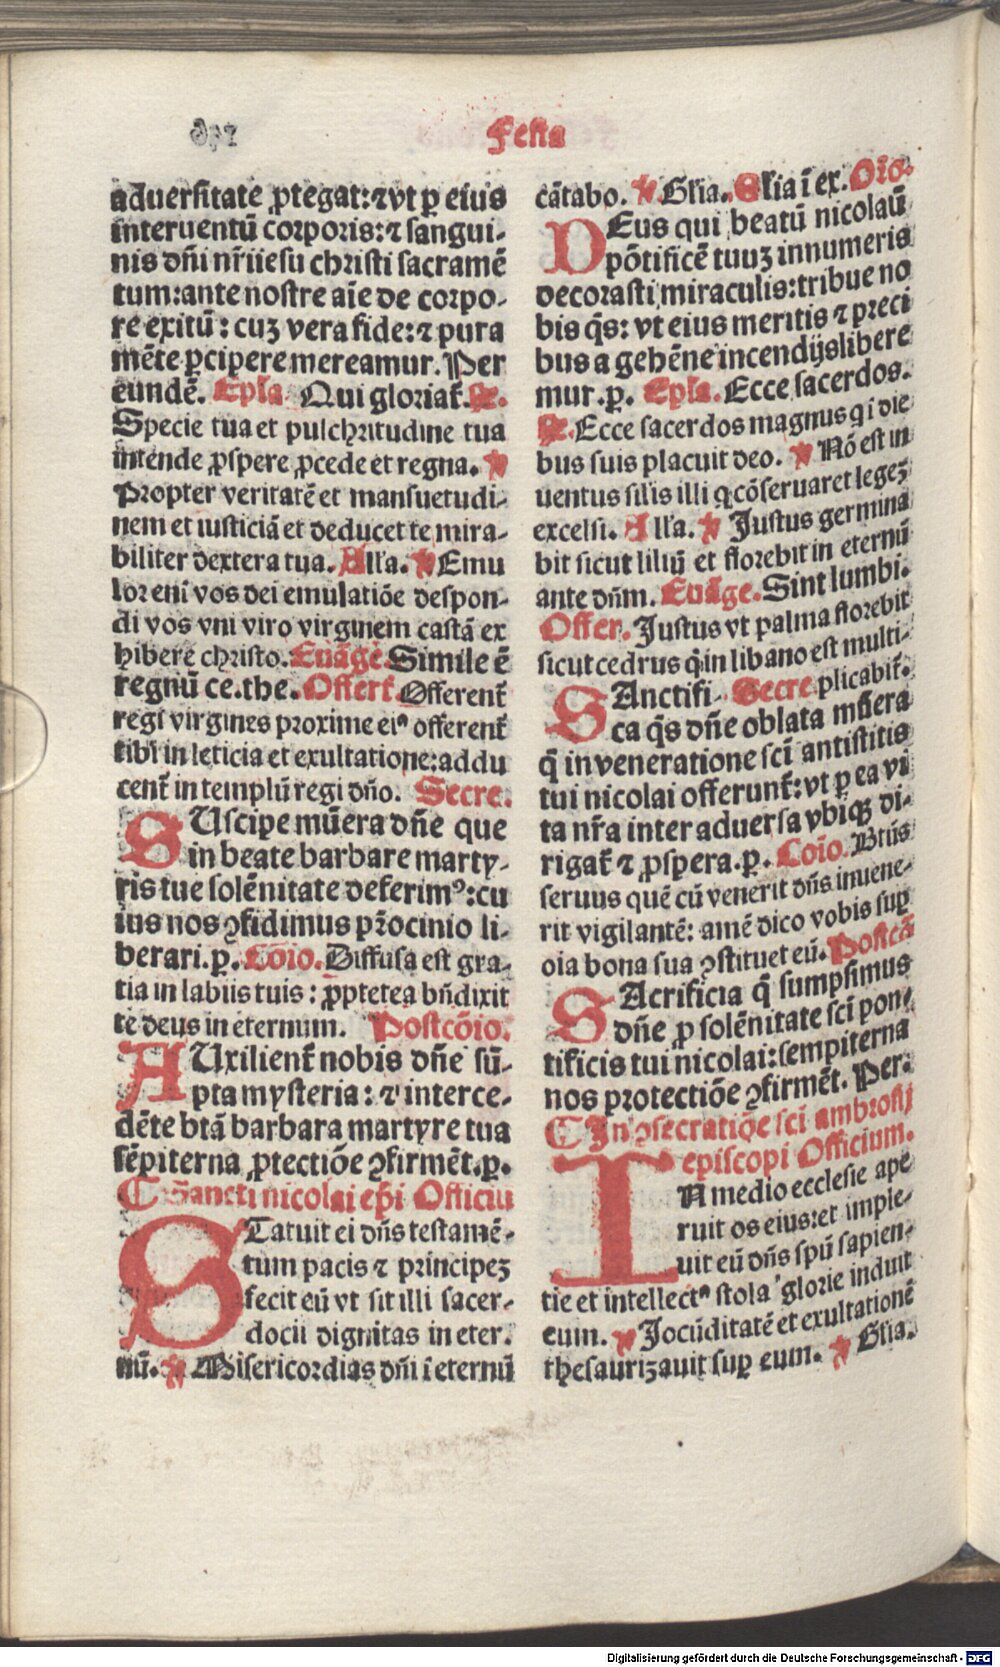 Festa
aduersitate ꝓtegat: ⁊ vt ꝑ eius
interuentū corporis: ⁊ sangui-
nis dn̄i nr̄i iesu christi sacramē
tum: ante nostre aīe de corpo-
re exitū: cuꝫ vera fide: ⁊ pura
mēte ꝑcipere mereamur. Per
eundē. Epl̄a Qui gloriat̄. R̄.
Specie tua et pulchritudine tua
intende ꝓspere ꝓcede et regna. ℣
Propter veritatē et mansuetudi-
nem et iusticiā et deducet te mira-
biliter dextera tua. All'a. ℣ Emu
lor eni vos dei emulatiōe despon-
di vos vni viro virginem castā ex
hibere christo. Euāge. Simile ē
regnū ce. the. Offert̄ Offerent̄
regi virgines proxime eiꝰ offerent̄
tibi in leticia et exultatione: addu
cent̄ in templū regi dn̄o. Secre.
SUscipe mūera dn̄e que
in beate barbare marty-
ris tue solēnitate deferimꝰ: cu
ius nos ꝯfidimus pr̄ocinio li-
berari. ꝑ. Cōio. Diffusa est gra-
tia in labiis tuis: ꝓptetea bn̄dixit
te deus in eternum. Postcōio.
AUxilient̄ nobis dn̄e sū-
pta mysteria: ⁊ interce-
dēte btā barbara martyre tua
sēpiterna ꝓtectiōe ꝯfirmēt. ꝑ.
C Sancti nicolai ep̄i Officiū
STatuit ei dn̄s testamē-
tum pacis ⁊ principeꝫ
fecit eū vt sit illi sacer-
docii dignitas in eter-
nū. ℣ Misericordias dn̄i ī eternū
cātabo. ℣ Gl'ia. Gl'ia ī ex. Orō.
DEus qui beatū nicolaū
pōtificē tuuꝫ innumeris
decorasti miraculis: tribue no
bis q̄s: vt eius meritis ⁊ preci
bus a gehēne incendijs libere
mur. ꝑ. Epl̄a. Ecce sacerdos.
R̄. Ecce sacerdos magnus q i die
bus suis placuit deo. ℣ Nō est in
uentus sil̄is illi q cōseruaret legeꝫ
excelsi. All'a. ℣ Justus germina
bit sicut liliū et florebit in eternū
ante dn̄m. Euāge. Sint lumbi.
Offer. Justus vt palma florebit
sicut cedrus q̄ in libano est multi-
Secre plicabit̄.
SAnctifi-
ca q̄s dn̄e oblata mūera
q̄ in veneratione sc̄i antistitis
tui nicolai offerunt̄: vt ꝑ ea vi
ta nr̄a inter aduersa vbiqꝫ di-
rigat̄ ⁊ ꝓspera. ꝑ. Cōio. Btūs
seruus quē cū venerit dn̄s inuene-
rit vigilantē: amē dico vobis suꝑ
oīa bona sua ꝯstituet eū. Postcō
SAcrificia q̄ sumpsimus
dn̄e ꝓ solēnitate sc̄i pon-
tificis tui nicolai: sempiterna
nos protectiōe ꝯfirmēt. Per.
C In ꝯsecratiōe sc̄i ambrosij
episcopi Officium.
IN medio ecclesie ape
ruit os eius: et imple-
uit eū dn̄s spū sapien-
tie et intellectꝰ stola glorie induit
eum. ℣ Jocūditatē et exultationē
thesaurizauit suꝑ eum. ℣ Gl'ia.
Digitalisierung gefördert durch die Deutsche Forschungsgemeinschaft - DFG